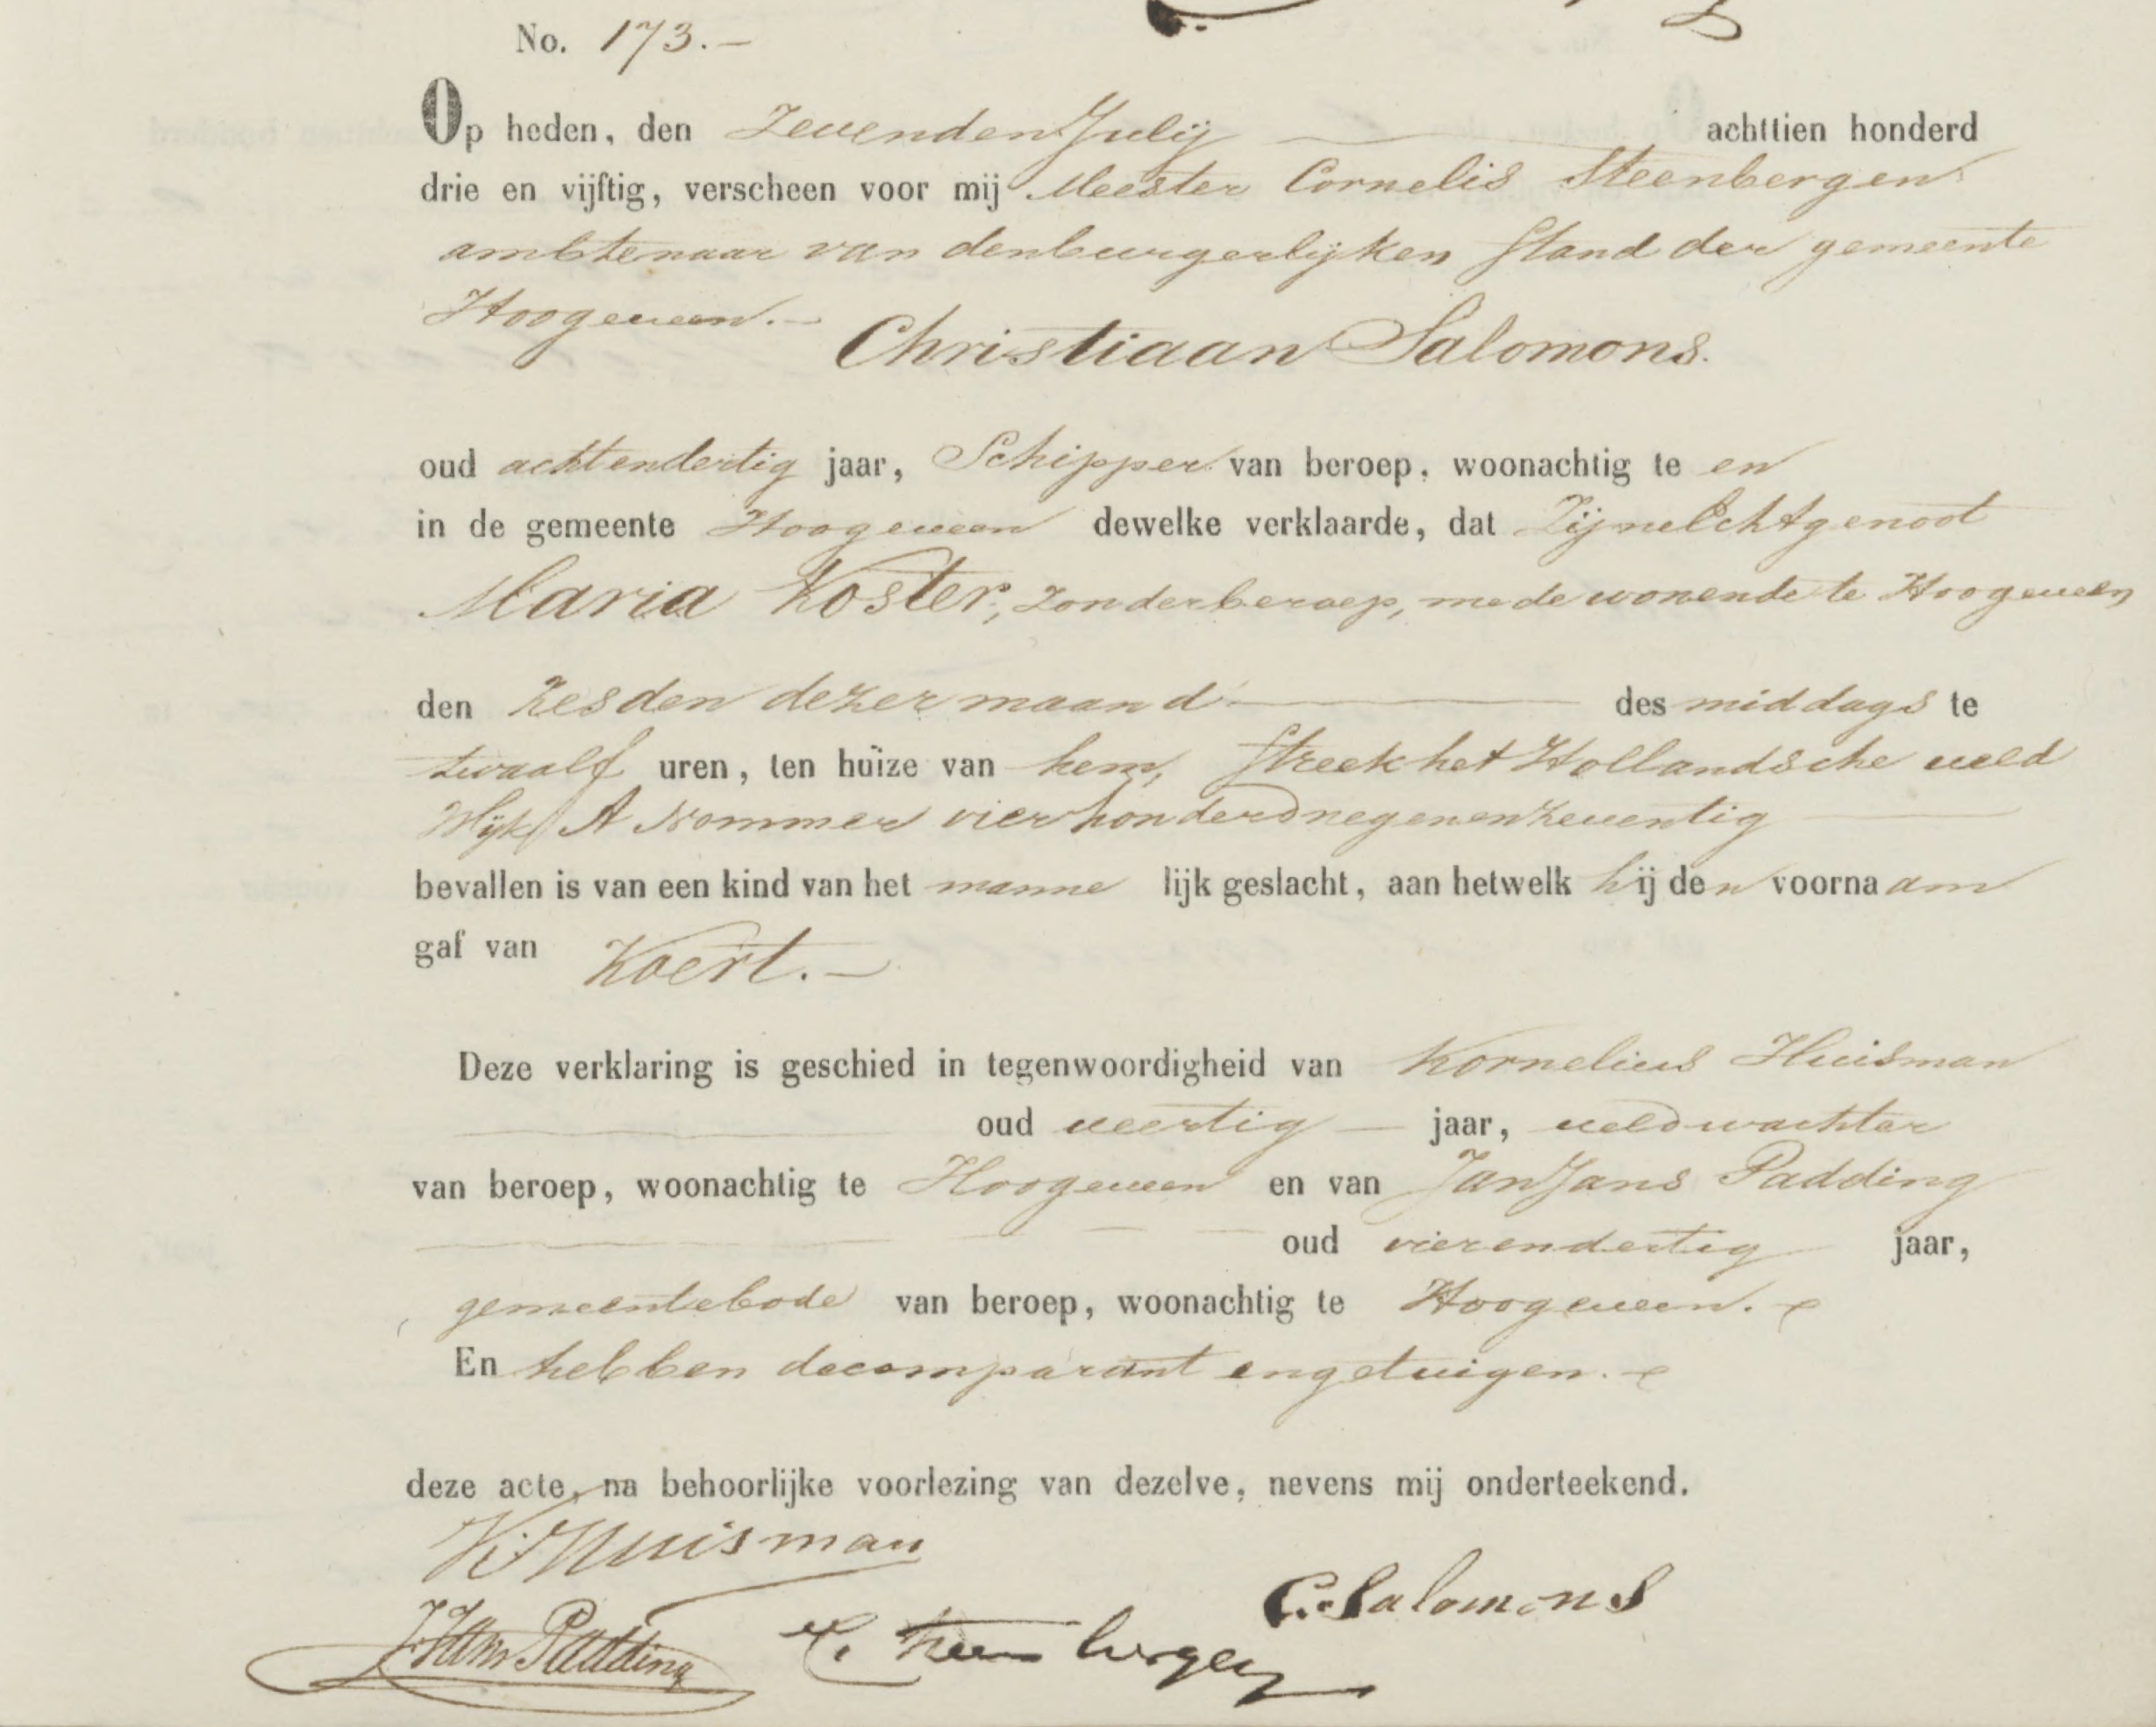 No. 173.-
Op heden, den Zevenden Julij achttien honderd
drie en vijftig, verscheen voor mij Meester Cornelis Steenbergen
ambtenaar van den burgerlijken Stand der gemeente
Hoogeveen.-
Christiaan Salomons.
oud achtendertig jaar, Schipper van beroep, woonachtig te en
in de gemeente Hoogeveen dewelke verklaarde, dat Zijne Echtgenoot
Maria Koster, zonder beroep, mede wonende te Hoogeveen
den Zesden dezer maand des middags te
twaalf uren, ten huize van hem, Streek het Hollandsche veld
Wijk A Nommer vierhonderdnegenenzeventig
bevallen is van een kind van het mannelijk geslacht, aan hetwelk hij den voornaam
gaf van Koert.-
Deze verklaring is geschied in tegenwoordigheid van Kornelius Huisman
oud veertig jaar, veldwachter
van beroep, woonachtig te Hoogeveen en van Jan Jans Padding
oud vierendertig jaar,
gemeentebode van beroep, woonachtig te Hoogeveen.
En hebben de comparant en getuigen.
deze acte, na behoorlijke voorlezing van dezelve, nevens mij onderteekend.
K. Huisman
C. Salomons
J Jans Padding C. Steenbergen